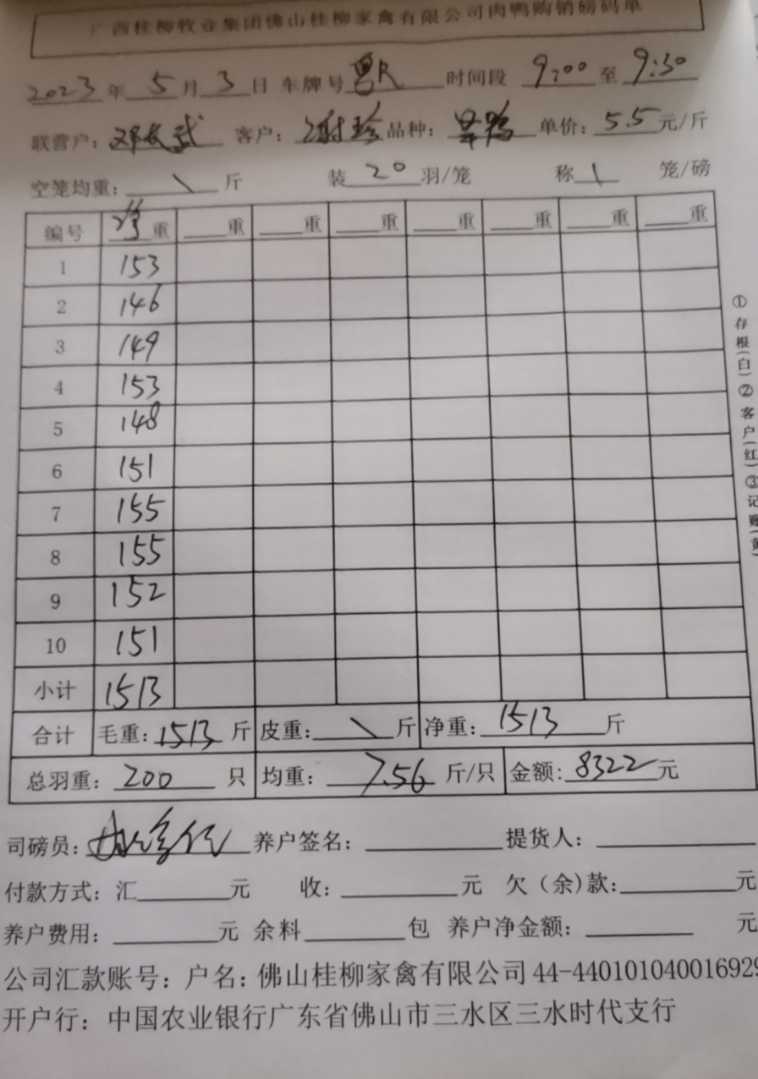 广西桂柳牧业集团佛山桂柳家禽有限公司肉鸭购销磅码单
2023年 5月 3日 车牌号 时间段 9:00 至 9:30
联营户: 客户: 谢珍 品种: 单价: 5.5 元/斤
空笼均重: \ 斤 装 20 羽/笼 称 \ 笼/磅
编号 净重 重 重 重 重 重 重 重
1 153
2 146
3 149
4 153
5 148
6 151
7 155
8 155
9 152
10 151
小计 1513
合计 毛重: 1513 斤 皮重: \ 斤 净重: 1513 斤
总羽重: 200 只 均重: 7.56 斤/只 金额: 8322 元
司磅员: 养户签名: 提货人:
付款方式: 汇 元 收: 元 欠(余)款: 元
养户费用: 元 余料 包 养户净金额: 元
公司汇款账号: 户名: 佛山桂柳家禽有限公司 44-440101040016929
开户行: 中国农业银行广东省佛山市三水区三水时代支行
①存根(白)②客户(红)③记账(黄)